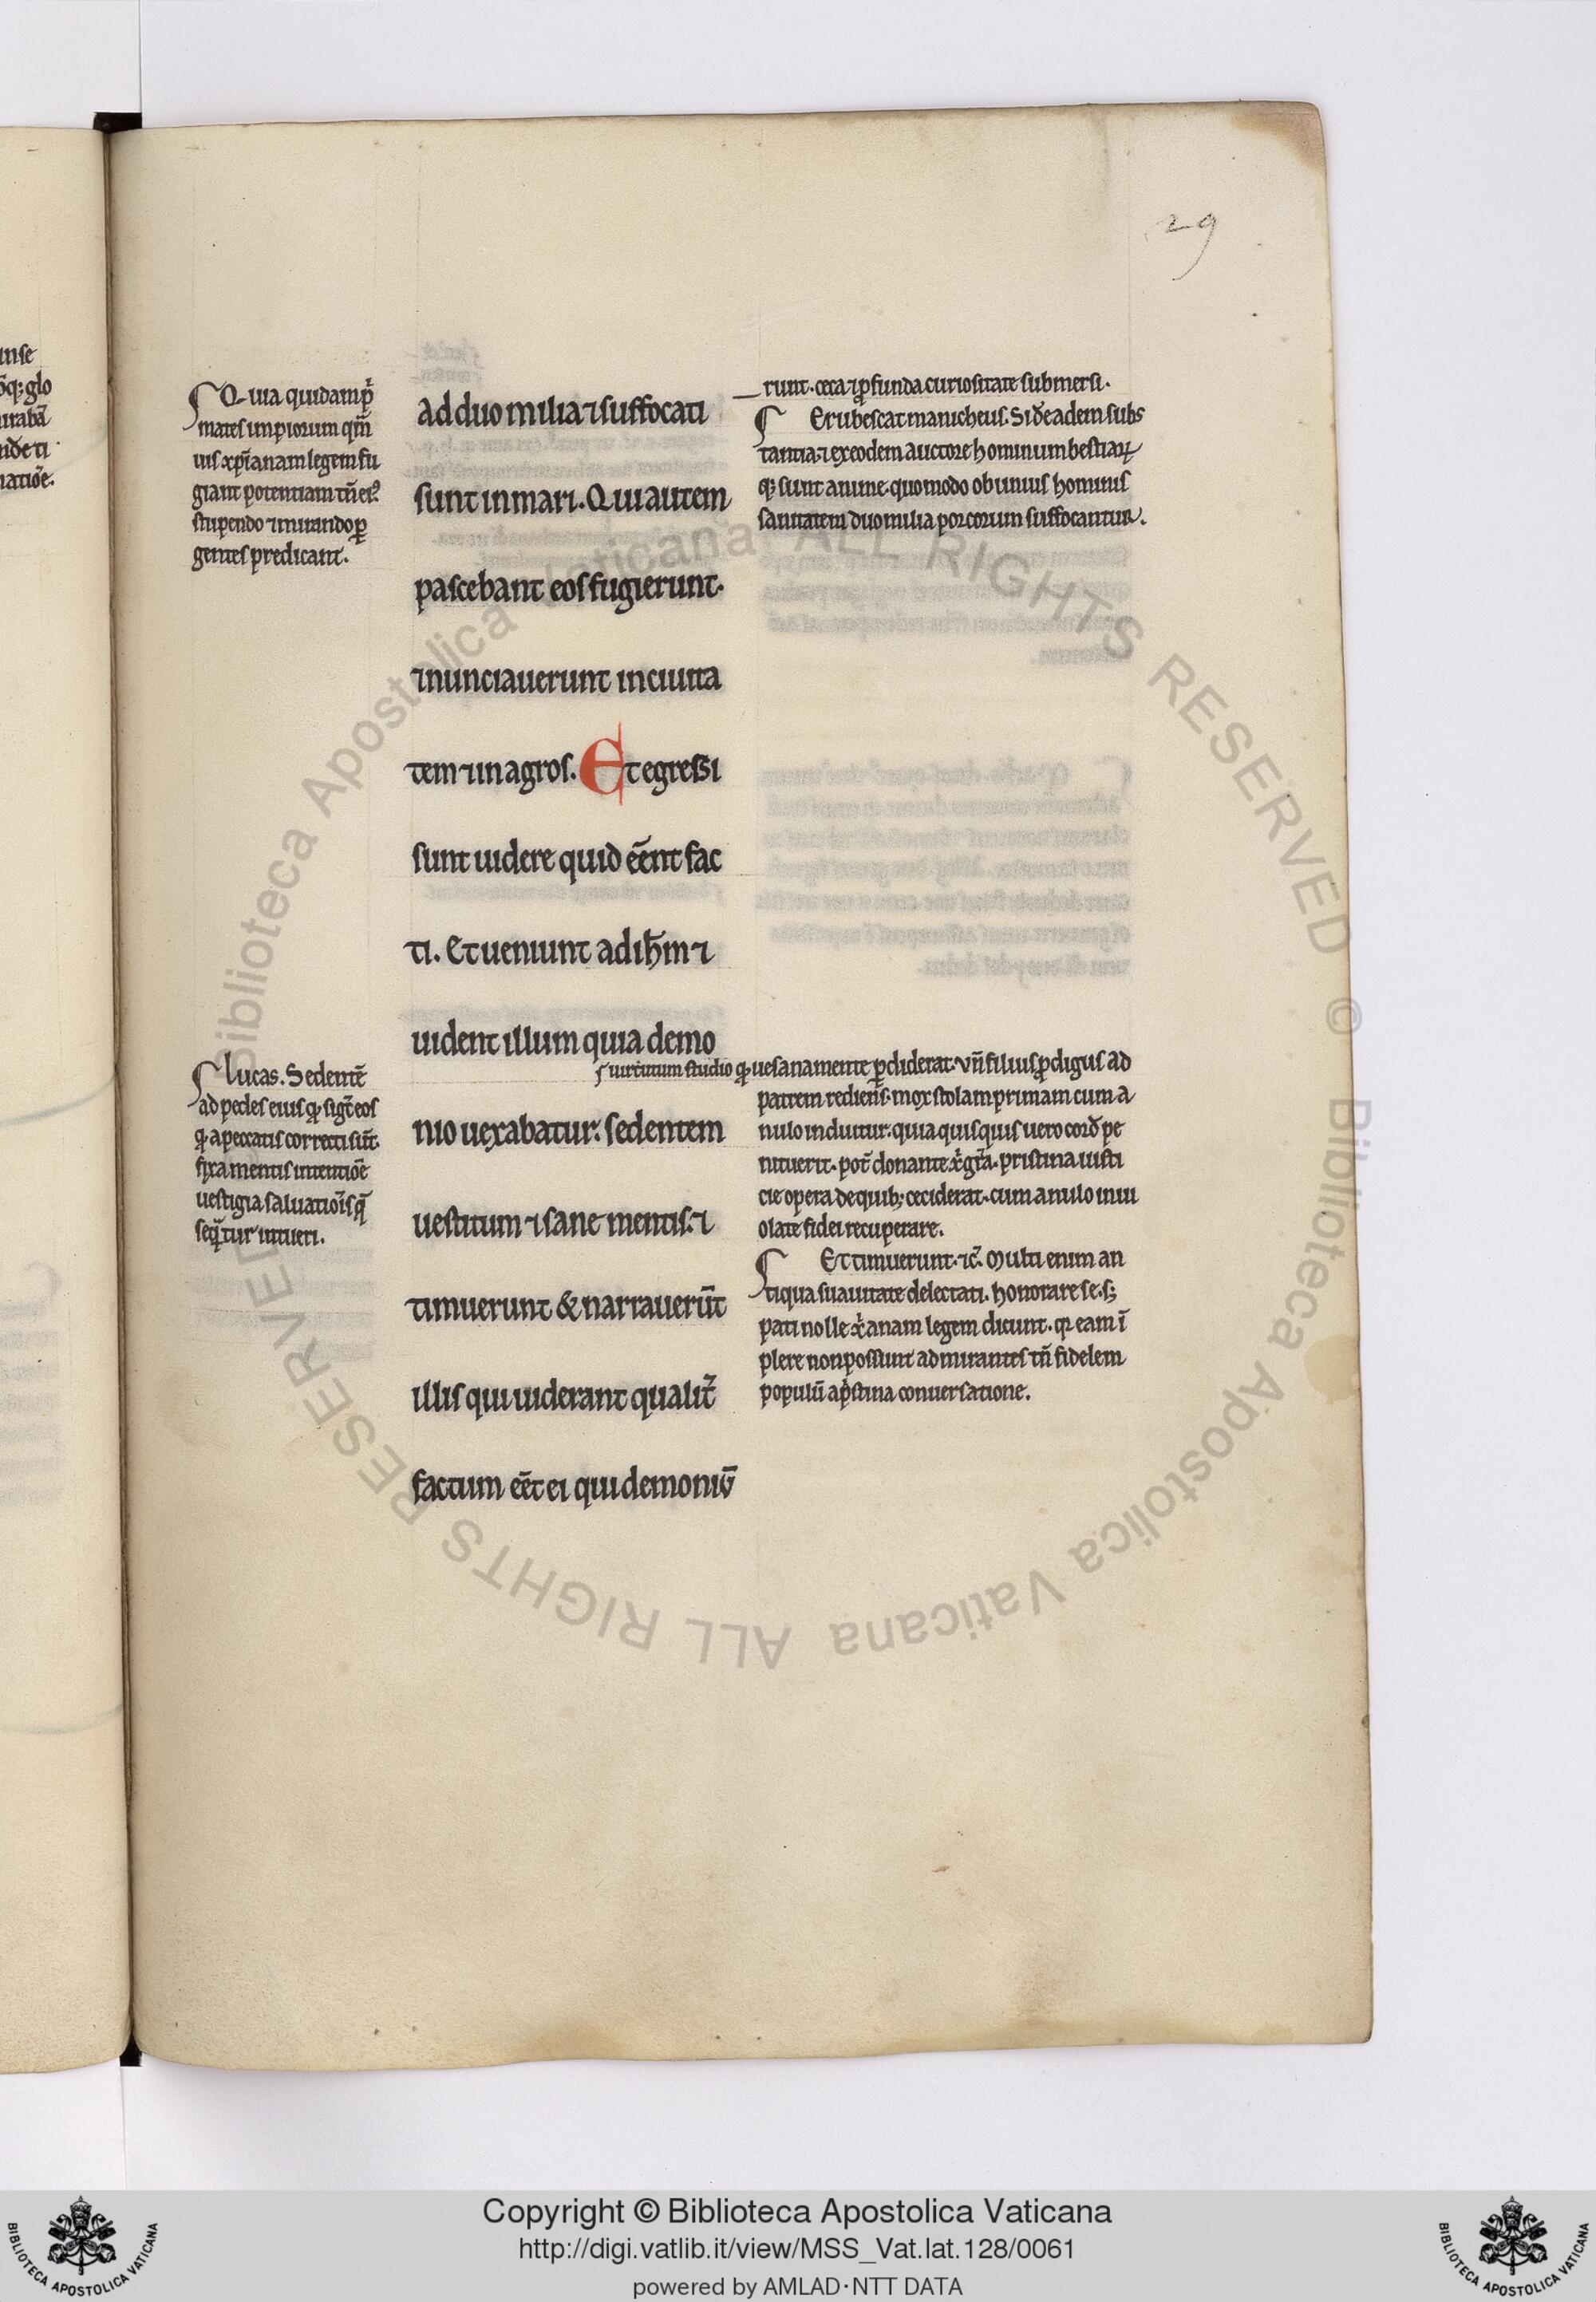 29
Q uia quidam p̄ͥ
mates impiorum qm̄
uis xp̄ianam legem fu
giant potentiam tn̄ ei⁹
stupendo ⁊ mirando ꝑ
gentes predicant.
ad duo milia ⁊ suffocati
sunt in mari. Q ui autem
pascebant eos fugierunt.
⁊ nunciauerunt in ciuita
tem ⁊ in agros. Et egressi
sunt uidere quid eēnt fac
ti. Et ueniunt ad ih̄m ⁊
uident illum quia demo
nio uexabatur. sedentem
uestitum ⁊ sane mentis. ⁊
timuerunt & narrauerūt
illis qui uiderant qualit̄
factum eēt ei qui demoniū
runt. ceca ⁊ ꝓfunda curiositate submersi.
Erubescat manicheus. Si de eadem subs
tantia ⁊ ex eodem auctore hominum bestiaꝝ
q; sunt anime. quomodo ob unius hominis
sanitatem duo milia porcorum suffocantur.
Lucas. Sedentē
ad pedes eius ꝙ sigt̄ eos
ꝙ a peccatis correcti sūt.
fixa mentis intentiōe
uestigia saluatiōis q̄
seq̄tur intueri.
uirtutum studio ꝙ uesana mente ꝑdiderat. vn̄ filius ꝓdigus ad
patrem rediens. mox stolam primam cum a
nulo induitur. quia quisquis uero cord̄ pe
nituerit. pot̄ donante x̄ gr̄a. pristina iusti
cie opera de quib; ceciderat. cum anulo inui
olate fidei recuperare.
Et timuerunt. ⁊c̄. Multi enim an
tiqua suauitate delectati. honorare se. s;
pati nolle x̄anam legem dicunt. qr eam ī
plere non possunt admirantes tn̄ fidelem
populū a pͥstina conuersatione.
Copyright © Biblioteca Apostolica Vaticana
http://digi.vatlib.it/view/MSS_Vat.lat.128/0061
powered by AMLAD·NTT DATA